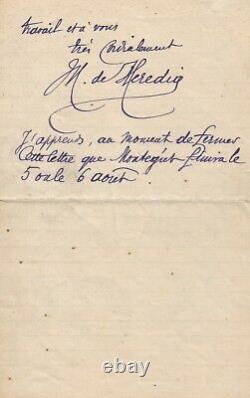 travail et à vous
très cordialement
M. de Heredia
J'apprends, au moment de fermer
cette lettre que Montégut finira le
5 ou le 6 août.
ebay.com